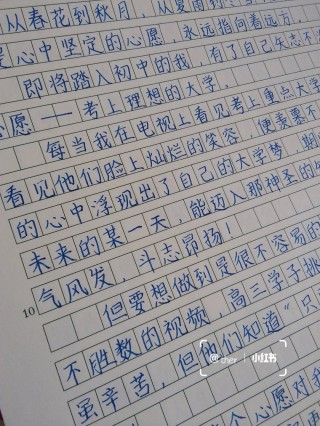 从春花到秋月，从夏雨到冬
是心中坚定的心愿，永远指向着远方，
即将踏入初中的我，有了自己矢志不
心愿——考上理想的大学。
每当我在电视上看见考上重点大学
看见他们脸上灿烂的笑容，便
的心中浮现出了自己的大学梦，期
未来的某一天，能迈入那神圣的
气风发，斗志昂扬！
10
但要想做到是很不容易的
不胜数的视频，高三学子挑
虽辛苦，但他们知道“只
个心愿对我
@cher 小红书